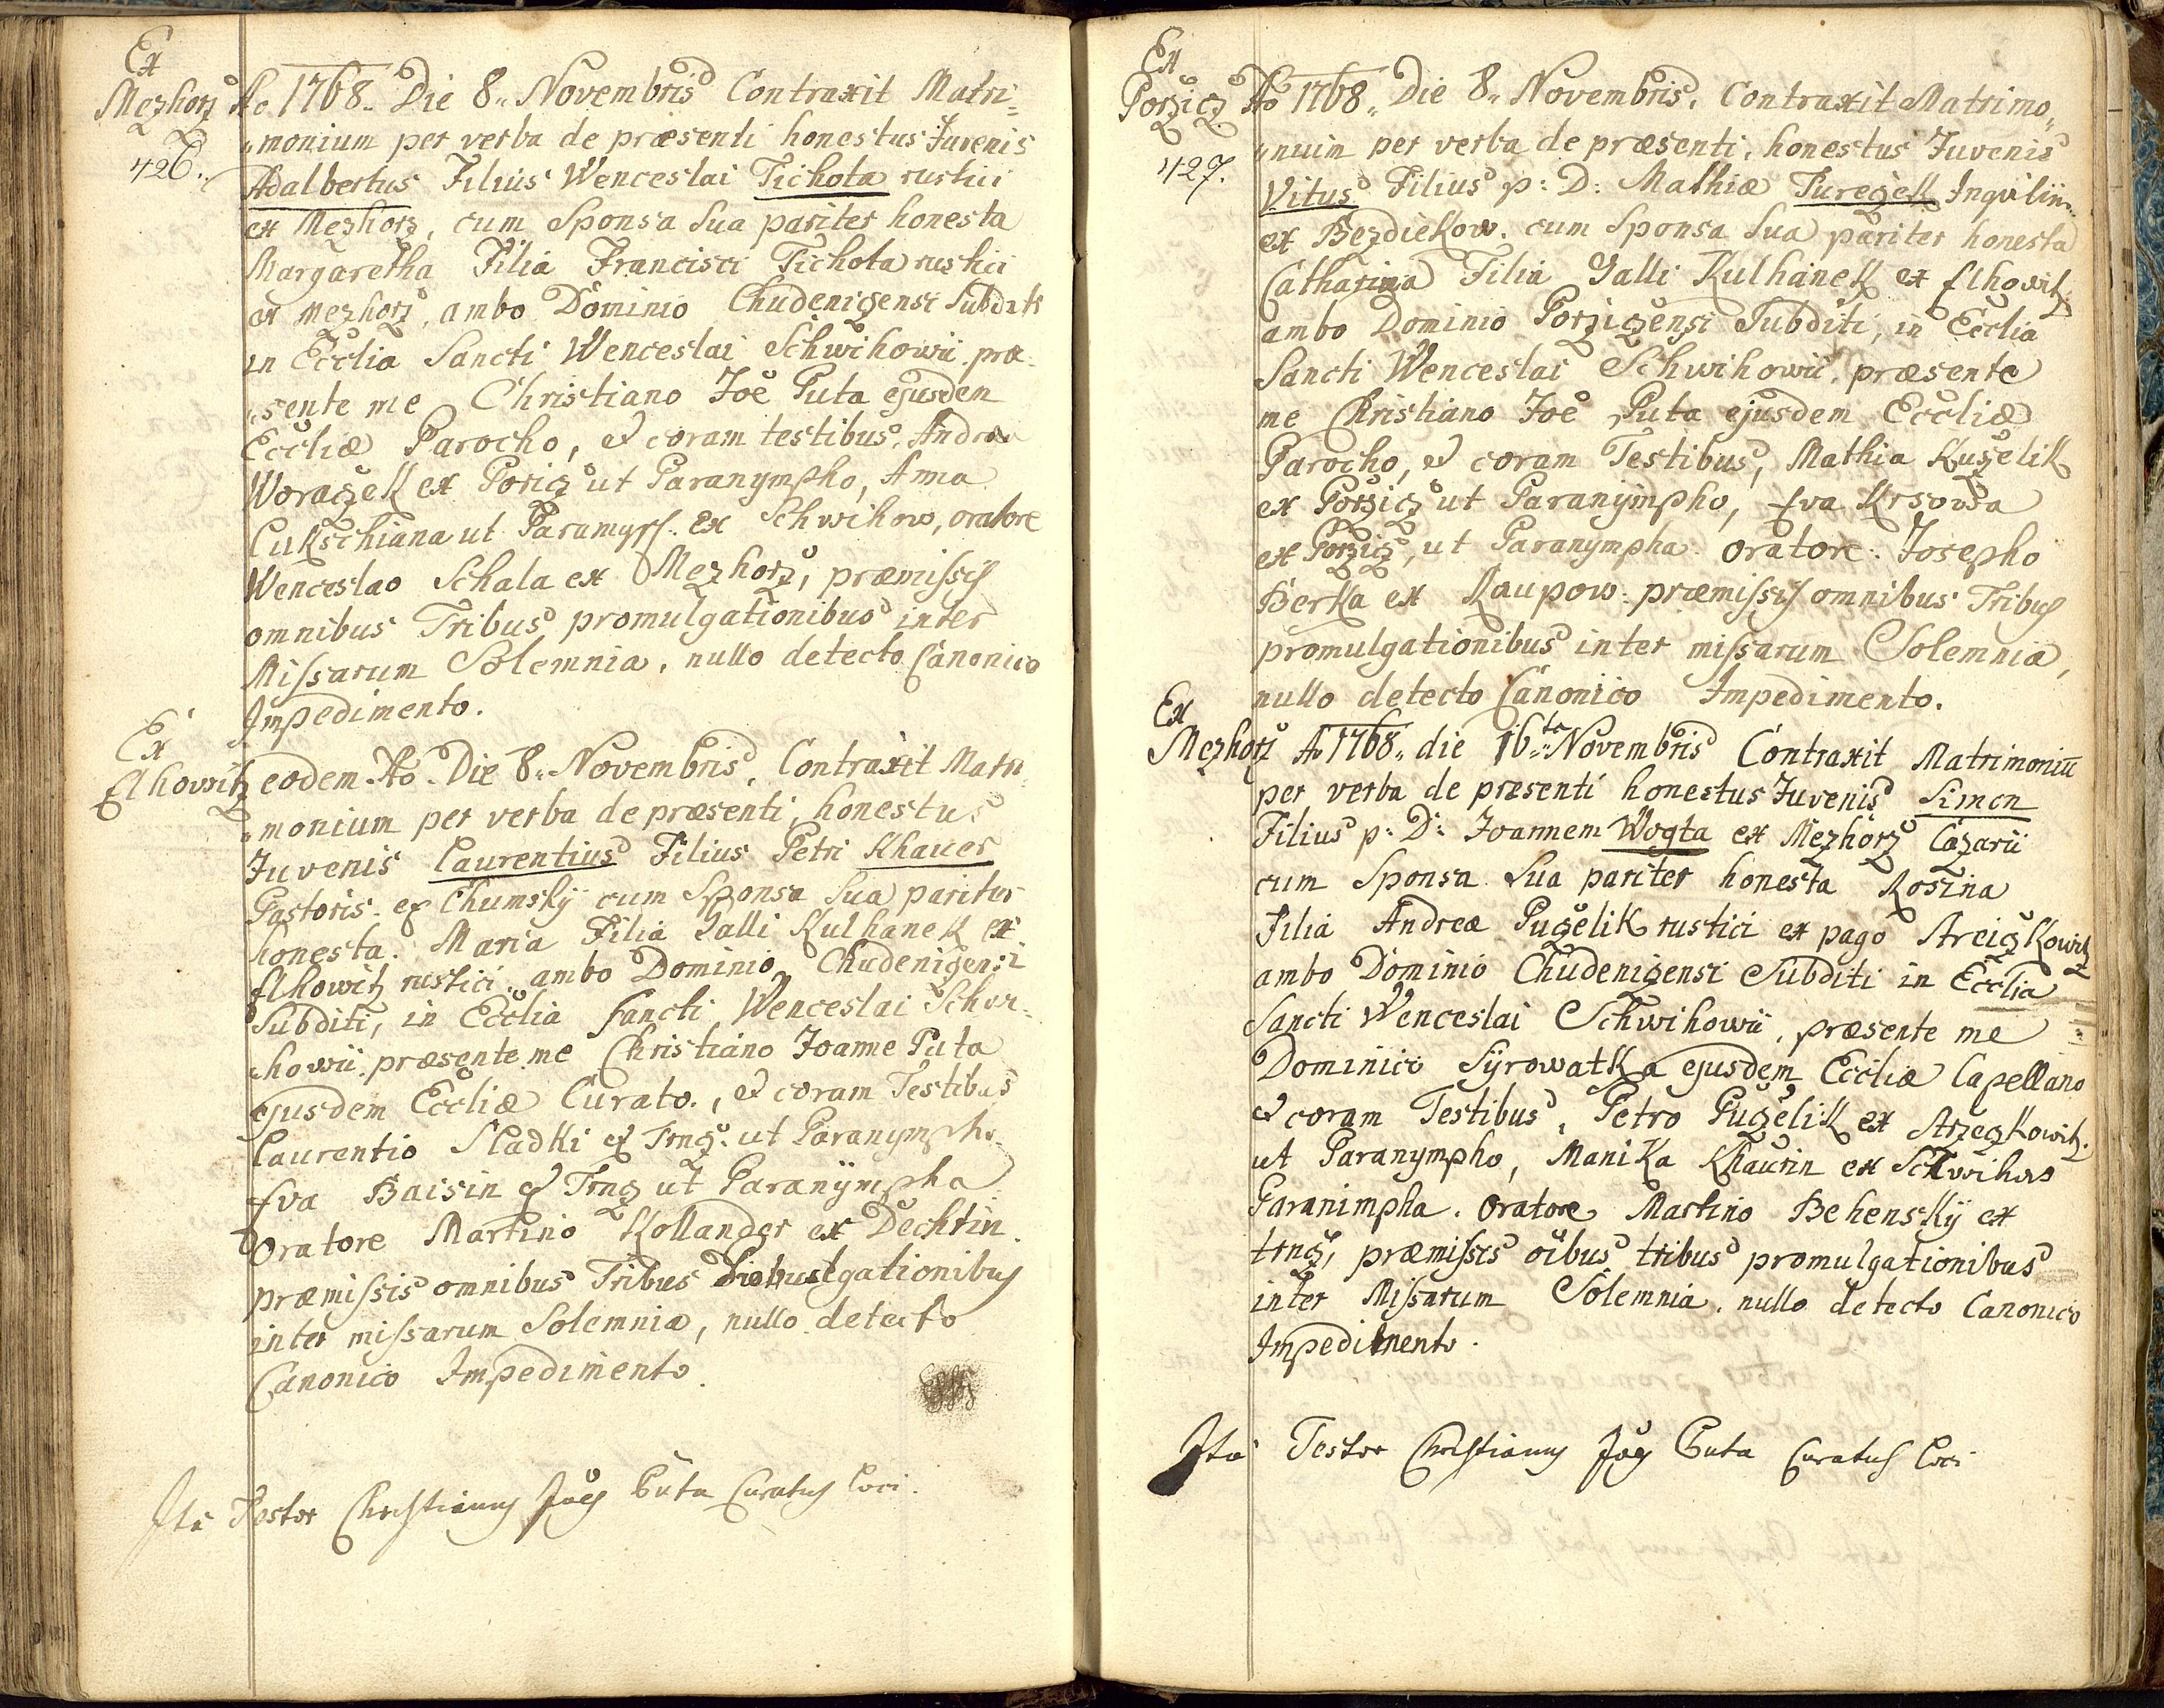 Ex
Mezhorz Ao 1768. Die 8.. Novembris Contraxit Matri=
426.
„monium per verba de præsenti honestus Juvenis
Adalbertus Filius Wenceslai Tichota rustici
ex Mezhorz, cum Sponsa Sua pariter honesta
Margaretha Filia Francisci Tichota rustici
ex Mezhorz, ambo Dominio Chudenizensi Subditi
in Ecclia Sancti Wenceslai Schwihowii præ
„sente me Christiano Joe Puta ejusdem
Eccliæ Parocho, et coram testibus, Andrea
Woraczek ex Poricz ut Paranympho, Anna
Lukschiana ut Paranymph. ex Schwihow, oratore
Wenceslao Schala ex Mezhorz, præmissis
omnibus Tribus promulgationibus inter
Missarum Solemnia, nullo detecto Canonico
Impedimento.
Ex
Elhowitz eodem Ao. Die 8.. Novembris, Contraxit Matri
„monium per verba de præsenti, honestus
Juvenis Laurentius Filius Petri Khauer
Pastoris ex Chumsky cum Sponsa Sua pariter
honesta. Maria Filia Galli Kulhanek ex
Elhowitz rustici, ambo Dominio Chudenizensi
Subditi, in Ecclia Sancti Wenceslai Schwi
„howii, præsente me Christiano Joanne Puta
ejusdem Eccliæ Curato., et coram Testibus
Laurentio Sladki ex Trnz. ut Paranympho
Eva Baisin ex Trnz ut Paranympha
Oratore Martino Kollander ex Dechtin.
præmissis omnibus Tribus gationibus
inter missarum Solemnia, nullo detecto
Canonico Impedimento.
Ita Testor Christianus Joes Puta Curatus loci.
Ex
Porzicz Ao 1768.. Die 8.. Novembris, Contraxit Matrimo„
427.
„nuim per verba de præsenti, honestus Juvenis
Vitus Filius p: D: Mathiæ Tureczek Inquilin..
ex Bezdiekow. cum Sponsa Sua pariter honesta
Catharina Filia Galli Kulhanek ex Elhowitz
ambo Dominio Porzizensi Subditi, in Ecclia
Sancti Wenceslai Schwihowii, præsente
me Christiano Joe Puta ejusdem Eccliæ
Parocho, et coram Testibus, Mathia Kuzelik
ex Porzicz ut Paranympho, Eva Krsowa
ex Porzicz, ut Paranympha. Oratore: Josepho
Berka ex Raupow. præmissis omnibus Tribus
promulgationibus inter missarum Solemnia,
nullo detecto Canonico Impedimento.
Ex
Mezhorz Ao 1768.. die 16..ta Novembris Contraxit Matrimoniū
per verba de præsenti honestus Juvenis Simon
Filius p: D: Joannem Wogta ex Mezhorz Cazarii
cum Sponsa Sua pariter honesta Rosina
Filia Andreæ Puzelik rustici ex pago Streiczkowitz
ambo Dominio Chudenizensi Subditi in Ecclia
Sancti Wenceslai Schwihowii, præsente me
Dominico Syrowatka ejusdem Eccliæ Capellano
et coram Testibus, Petro Puzelik ex Strzezkowitz.
ut Paranympho, Manika Khaurin ex Schwihow
Paranimpha. Oratore Martino Behensky ex
trnz, præmissis oibus tribus promulgationibus
inter Missarum Solemnia, nullo detecto Canonico
Impedimento.
Ita Testor Christianus Joes Puta Curatus loci